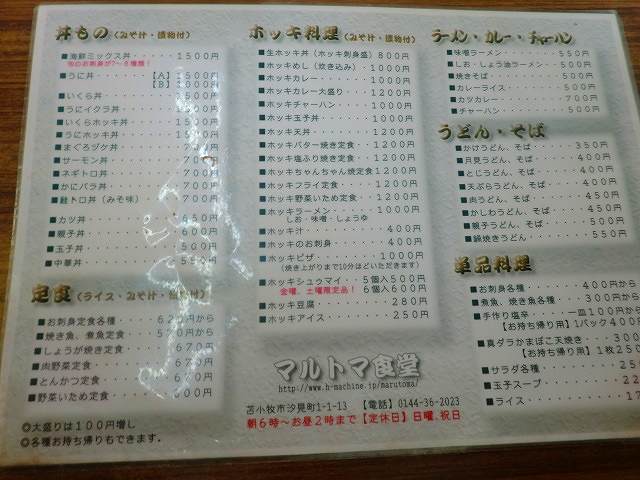 丼もの (みそ汁・漬物付)
■海鮮ミックス丼・・・・・1500円
■うに丼・・・・【A】1500円
【B】1000円
■いくら丼・・・・・・1500円
■うにイクラ丼・・・・1500円
■いくらホッキ丼・・・1500円
■うにホッキ丼・・・・1500円
■まぐろヅケ丼
■サーモン丼
■ネギトロ丼
■かにバラ丼
■鮭トロ丼(みそ味)
■カツ丼
■親子丼
■玉子丼・・・・・・500円
■中華丼・・・・・・550円
定食 (ライス・みそ汁・漬物付)
■お刺身定食各種・・620円から
■焼き魚、煮魚定食・・570円から
■しょうが焼き定食・・・670円
■肉野菜定食・・・・・670円
■とんかつ定食・・・・670円
■野菜いため定食・・・600円
◎大盛りは100円増し
◎各種お持ち帰りもできます。
ホッキ料理 (みそ汁・漬物付)
■生ホッキ丼(ホッキ刺身盛)800円
■ホッキめし(炊き込み)・・1000円
■ホッキカレー・・・・・1000円
■ホッキカレー大盛り・・・1200円
■ホッキチャーハン・・・・1000円
■ホッキ玉子丼・・・・・1000円
■ホッキ天丼・・・・・・1200円
■ホッキバター焼き定食・・1200円
■ホッキ塩ふり焼き定食・・1200円
■ホッキちゃんちゃん焼定食1200円
■ホッキフライ定食・・・・1200円
■ホッキ野菜いため定食・・1200円
■ホッキラーメン・・・・・1000円
しお・味噌・しょうゆ
■ホッキ汁・・・・・・・400円
■ホッキのお刺身・・・・・400円
■ホッキピザ・・・・・・1000円
(焼き上がりまで10分ほどいただきます)
■ホッキシュウマイ・・5個入500円
金曜、土曜限定品! 6個入600円
■ホッキ豆腐・・・・・・280円
■ホッキアイス・・・・・250円
マルトマ食堂
http://www.h-machine.jp/marutoma/
苫小牧市汐見町1-1-13 【電話】0144-36-2023
朝6時〜お昼2時まで【定休日】日曜、祝日
ラーメン・カレー・チャーハン
■味噌ラーメン・・・・・・550円
■しお・しょう油ラーメン・・500円
■焼きそば・・・・・・・500円
■カレーライス・・・・・500円
■カツカレー・・・・・・700円
■チャーハン・・・・・・500円
うどん・そば
■かけうどん、そば・・・350円
■月見うどん、そば・・・400円
■とじうどん、そば・・・400円
■天ぷらうどん、そば・・400円
■肉うどん、そば・・・・450円
■かしわうどん、そば・・450円
■親子うどん、そば・・・500円
■鍋焼きうどん・・・・・550円
単品料理
■お刺身各種・・・・・400円から
■煮魚、焼き魚各種・・・300円から
■手作り塩辛・・・・一皿100円から
【お持ち帰り用】1パック400
■真ダラかまぼこ天焼き・・・300
【お持ち帰り用】1枚250
■サラダ各種・・・・・25
■玉子スープ・・・・・22
■ライス・・・・・・・17